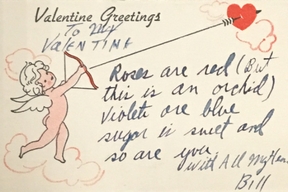 Valentine Greetings
To My
VALENTINE
Roses are red (But
this is an orchid)
Violets are blue
sugar is sweet and
so are you.
With All My Heart
Bill